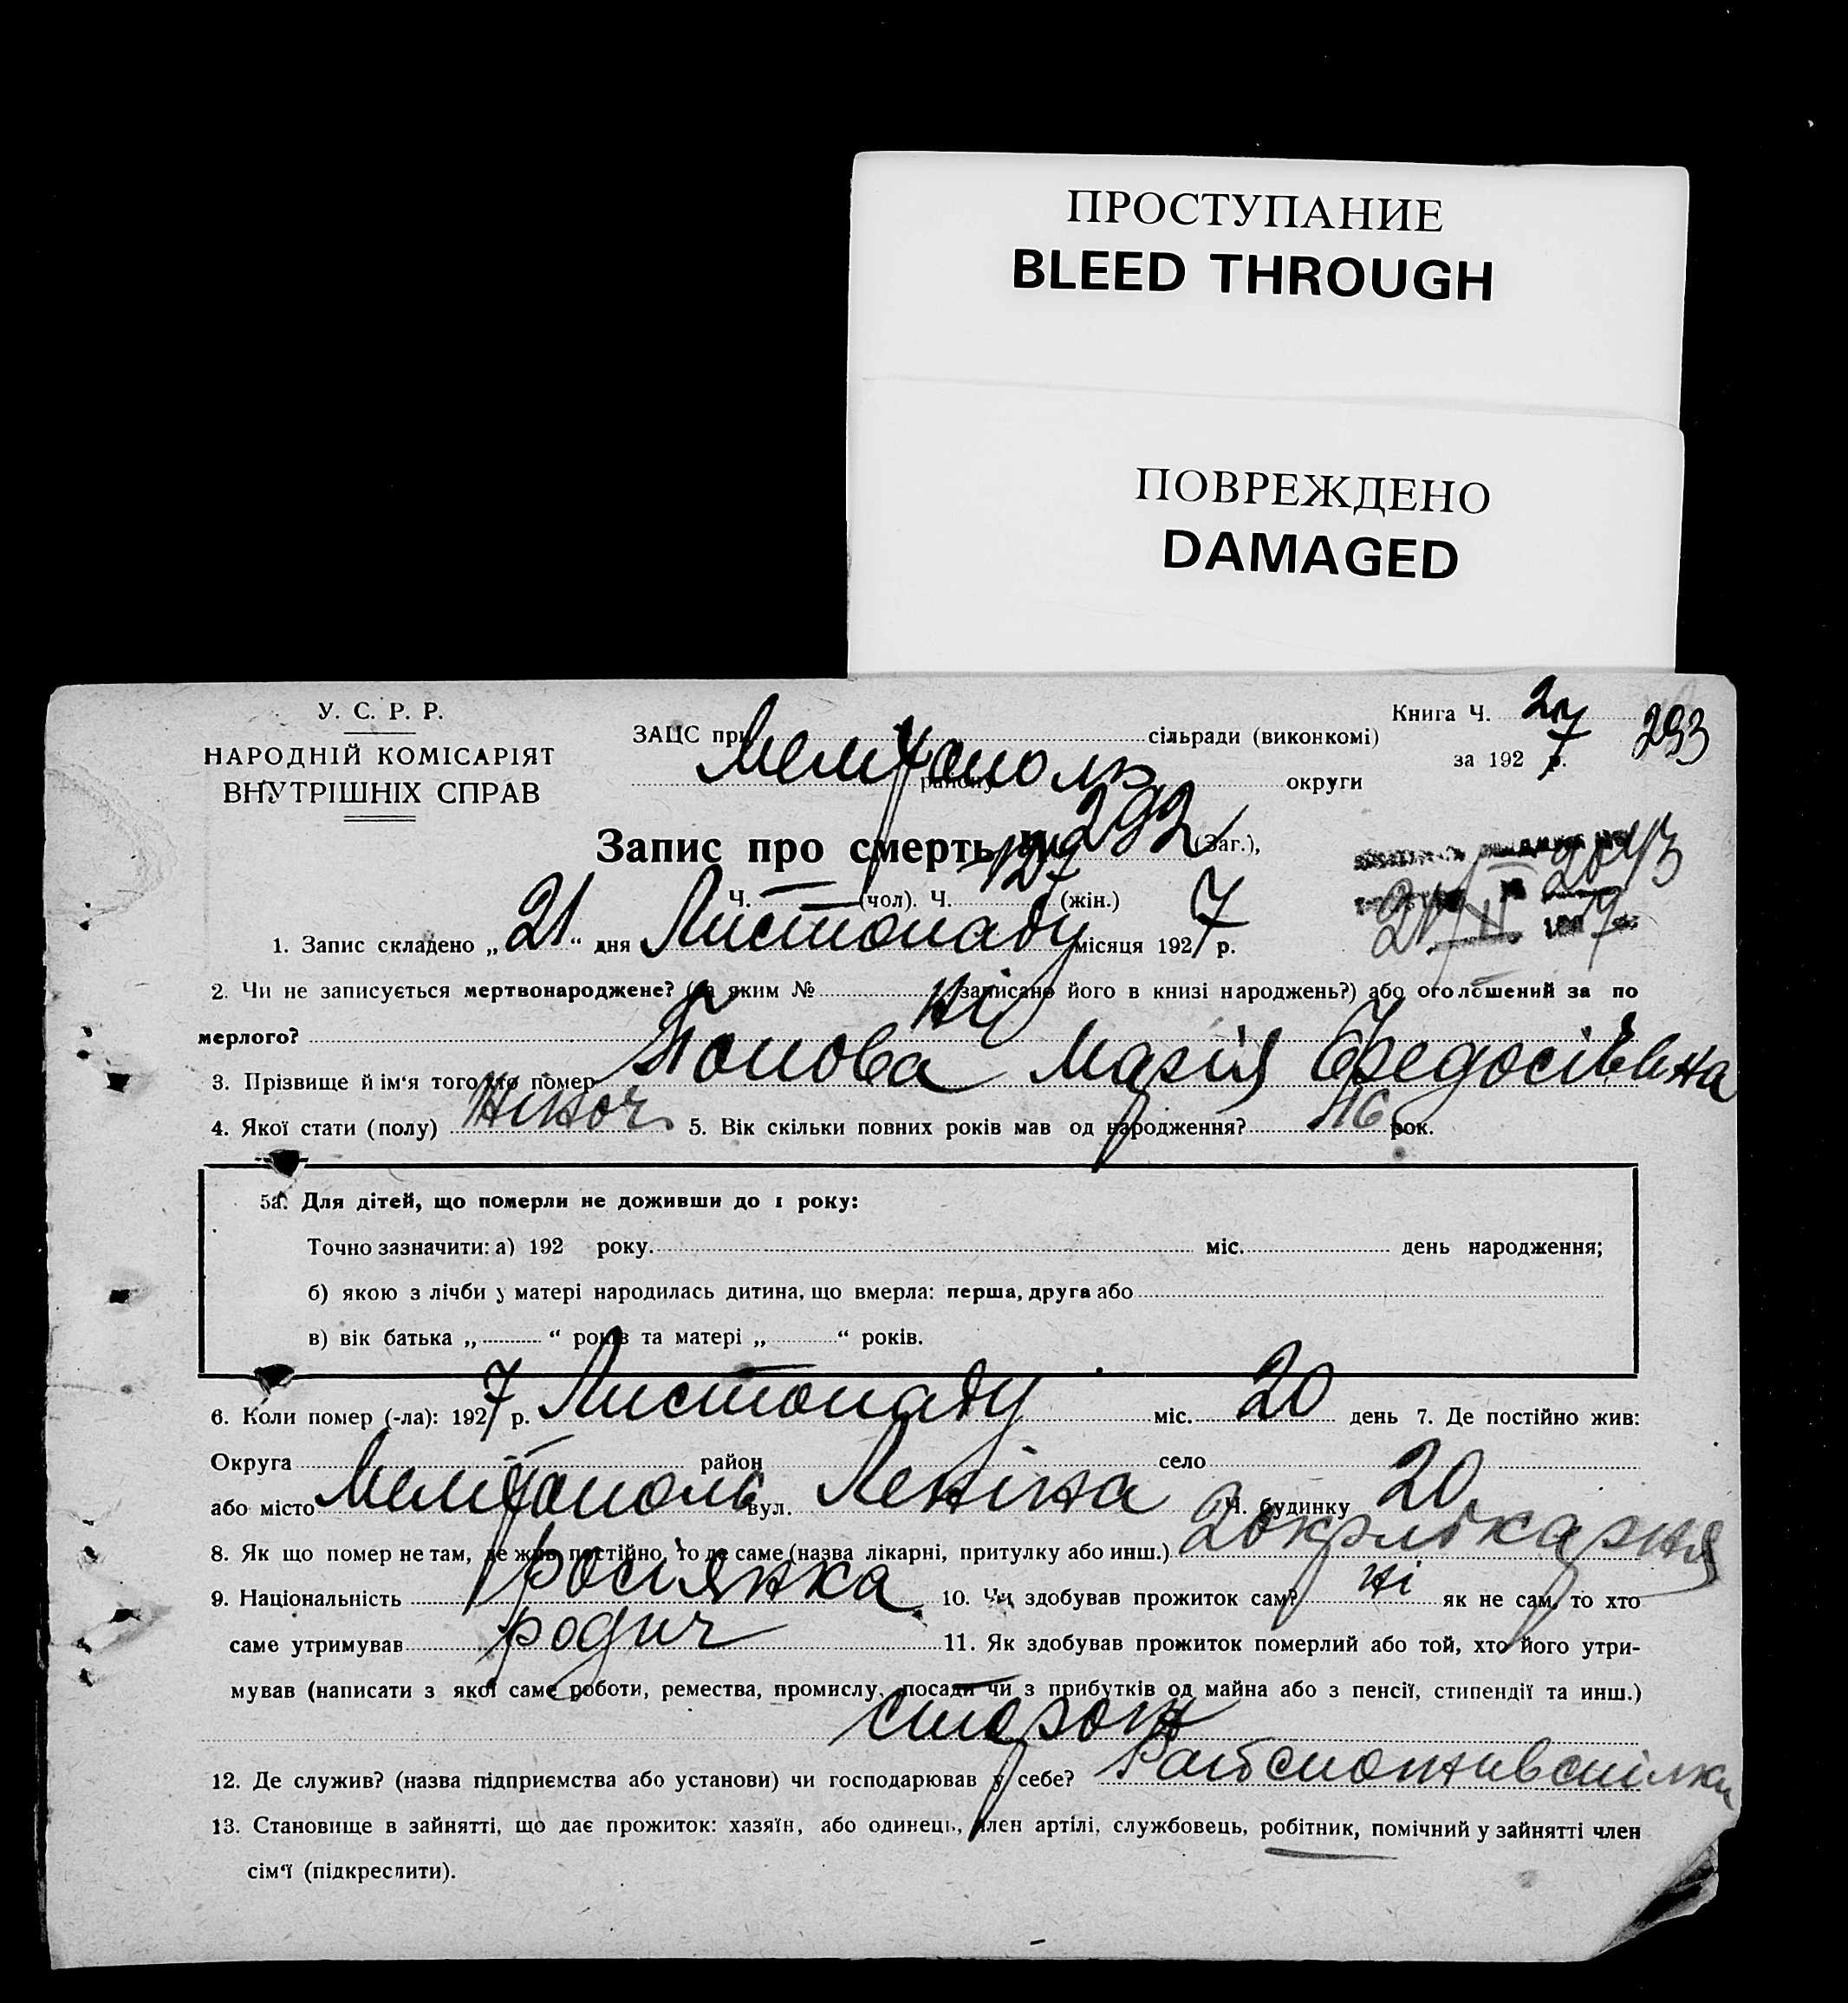 ПРОСТУПАНИЕ
BLEED THROUGH
ПОВРЕЖДЕНО
DAMAGED
У. С. Р. Р.
НАРОДНІЙ КОМІСАРІЯТ
ВНУТРІШНІХ СПРАВ
Книга Ч. 27 293
ЗАЦС при сільради (виконкомі)
за 1927 р.
Мелітополь району округи
Запис про смерть Ч. 292 (Заг.),
Ч. — (чол). Ч. 127 (жін.)
2043
21/II 1927
1. Запис складено „21“ дня Листопаду місяця 1927 р.
2. Чи не записується мертвонароджене? (за яким № записано його в книзі народжень?) або оголошений за по
мерлого? ні
3. Прізвище й ім‘я того хто помер Попова Марія Федосіївна
4. Якої стати (полу) жіноч 5. Вік скільки повних років мав од народження? 46 рок.
5а. Для дітей, що померли не доживши до 1 року:
Точно зазначити: а) 192 року. міс. день народження;
б) якою з лічби у матері народилась дитина, що вмерла: перша, друга або
в) вік батька „ “ років та матері „ “ років.
6. Коли помер (-ла): 1927 р. Листопаду міс. 20 день 7. Де постійно жив:
Округа район село
або місто Мелітополь вул. Леніна Ч. будинку 20
8. Як що помер не там, де жив постійно, то де саме (назва лікарні, притулку або инш.) окрлікарня
9. Національність росіянка 10. Чи здобував прожиток сам? ні як не сам, то хто
саме утримував родич 11. Як здобував прожиток померлий або той, хто його утри-
мував (написати з якої саме роботи, ремества, промислу, посади чи з прибутків од майна або з пенсії, стипендії та инш.)
сторож
12. Де служив? (назва підприємства або установи) чи господарював у себе? Райспоживспілка
13. Становище в зайнятті, що дає прожиток: хазяїн, або одинець, член артілі, службовець, робітник, помічний у зайнятті член
сім‘ї (підкреслити).